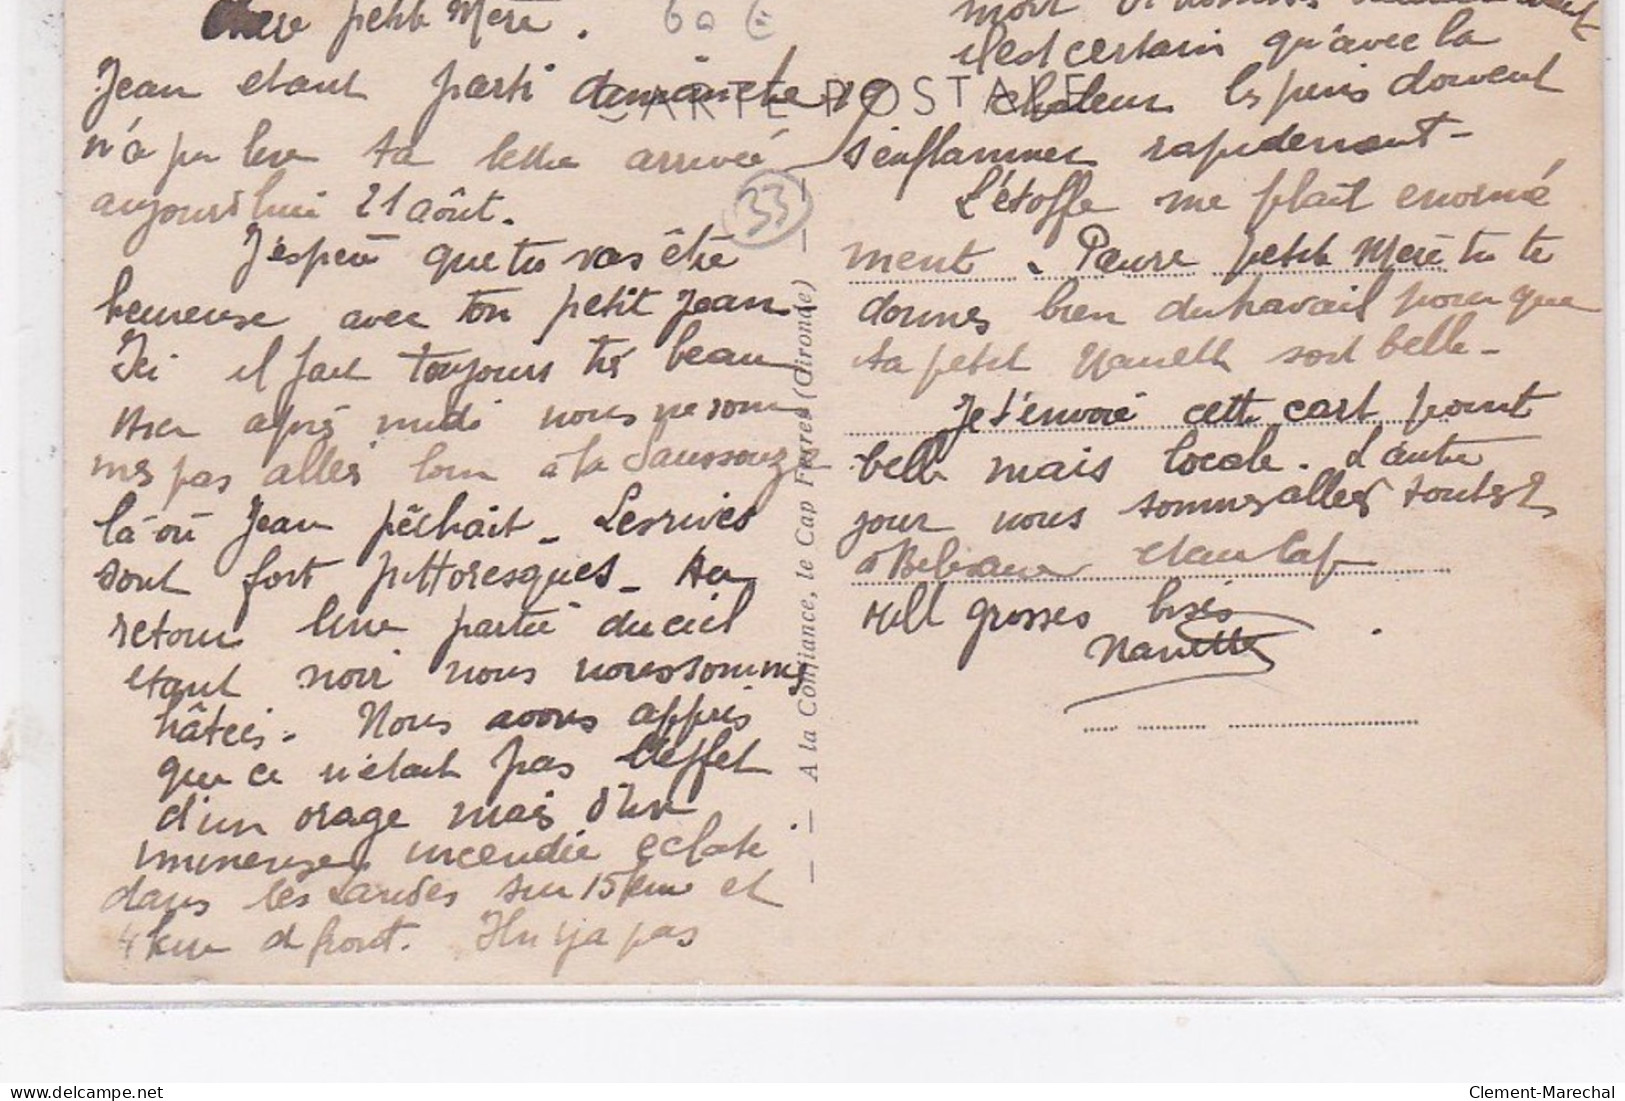 Chere petite Mère. 60 €
Jean etant parti dimanche 19
n'a pu lire ta lettre arrivée
aujourd'hui 21 août.
J'espère que tu vas être
heureuse avec ton petit Jean
Ici il fait toujours très beau
Hier après midi nous ne som
mes pas allés loin à la
là où Jean pêchait - Les rives
sont fort pittoresques - Au
retour une partie du ciel
etant noir nous nous sommes
hâtées. Nous avons appris
que ce n'était pas l'effet
d'un orage mais d'un
immense incendie eclaté
dans les Landes sur 15 km et
4 km de front. Il n'y a pas
mort
il est certain qu'avec la
chaleur les pins doivent
s'enflammer rapidement -
L'étoffe me plait enormé
ment. Pauvre petite Mère tu te
donnes bien du travail pour que
ta petite Nanette soit belle -
Je t'envoie cette carte point
belle mais locale. L'autre
jour nous sommes allés toutes 2
à Belisaire et au Cap
Mille grosses bises
Nanette
CARTE POSTALE
33
A la Confiance, le Cap Ferret (Gironde)
delcampe.net
Clement-Marechal